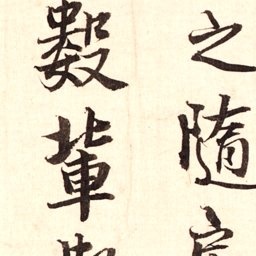 之隨
數輩